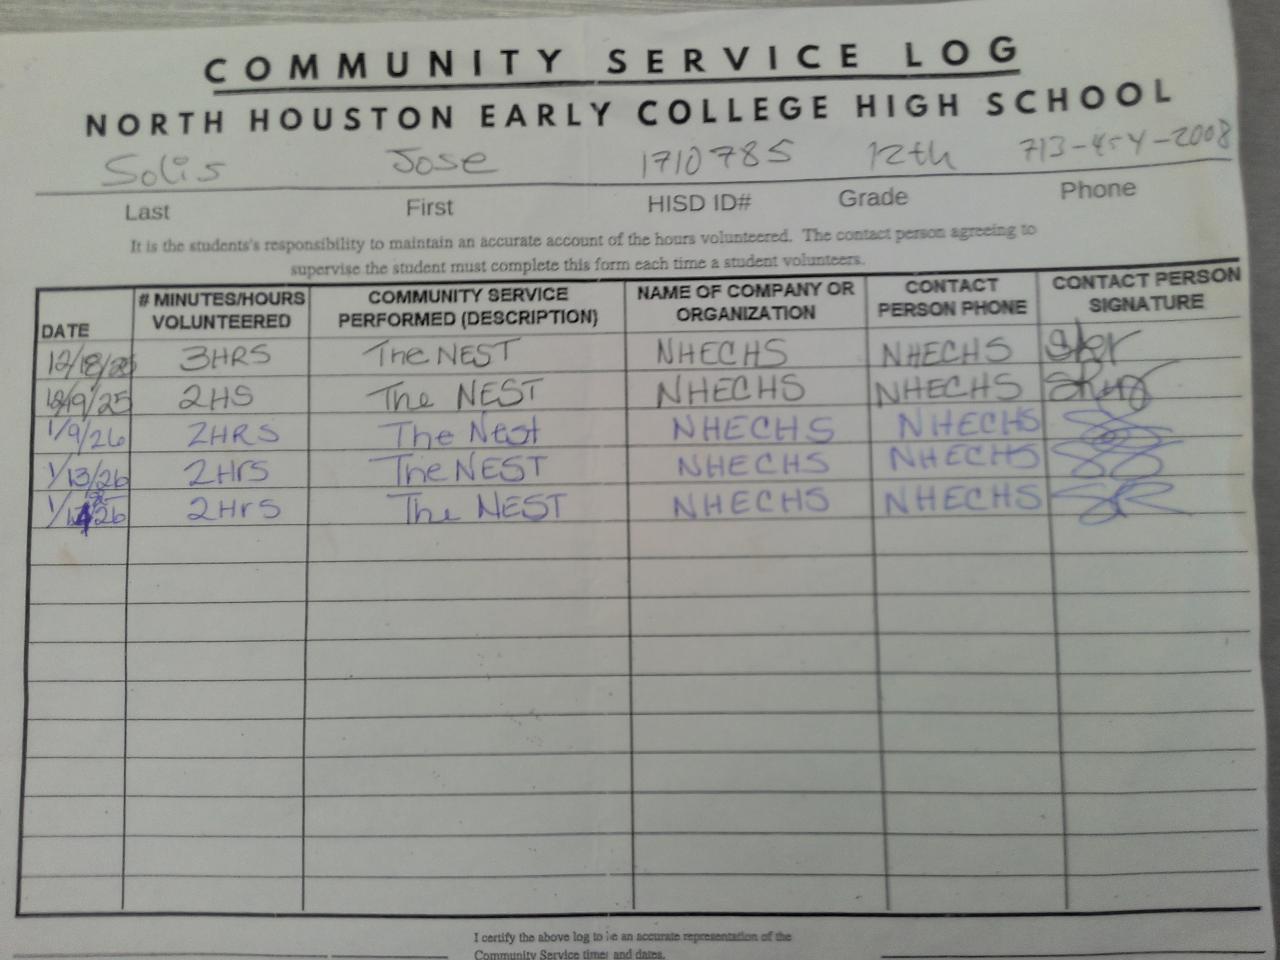 COMMUNITY SERVICE LOG
NORTH HOUSTON EARLY COLLEGE HIGH SCHOOL
Solis Jose 1710785 12th 713-454-2008
Last First HISD ID# Grade Phone
It is the students's responsibility to maintain an accurate account of the hours volunteered. The contact person agreeing to
supervise the student must complete this form each time a student volunteers.
DATE # MINUTES/HOURS VOLUNTEERED COMMUNITY SERVICE PERFORMED (DESCRIPTION) NAME OF COMPANY OR ORGANIZATION CONTACT PERSON PHONE CONTACT PERSON SIGNATURE
12/18/25 3HRS The NEST NHECHS NHECHS
12/19/25 2HS The NEST NHECHS NHECHS
1/9/26 2HRS The Nest NHECHS NHECHS
1/13/26 2Hrs The NEST NHECHS NHECHS
2Hrs The NEST NHECHS NHECHS
I certify the above log to be an accurate representation of the
Community Service times and dates.